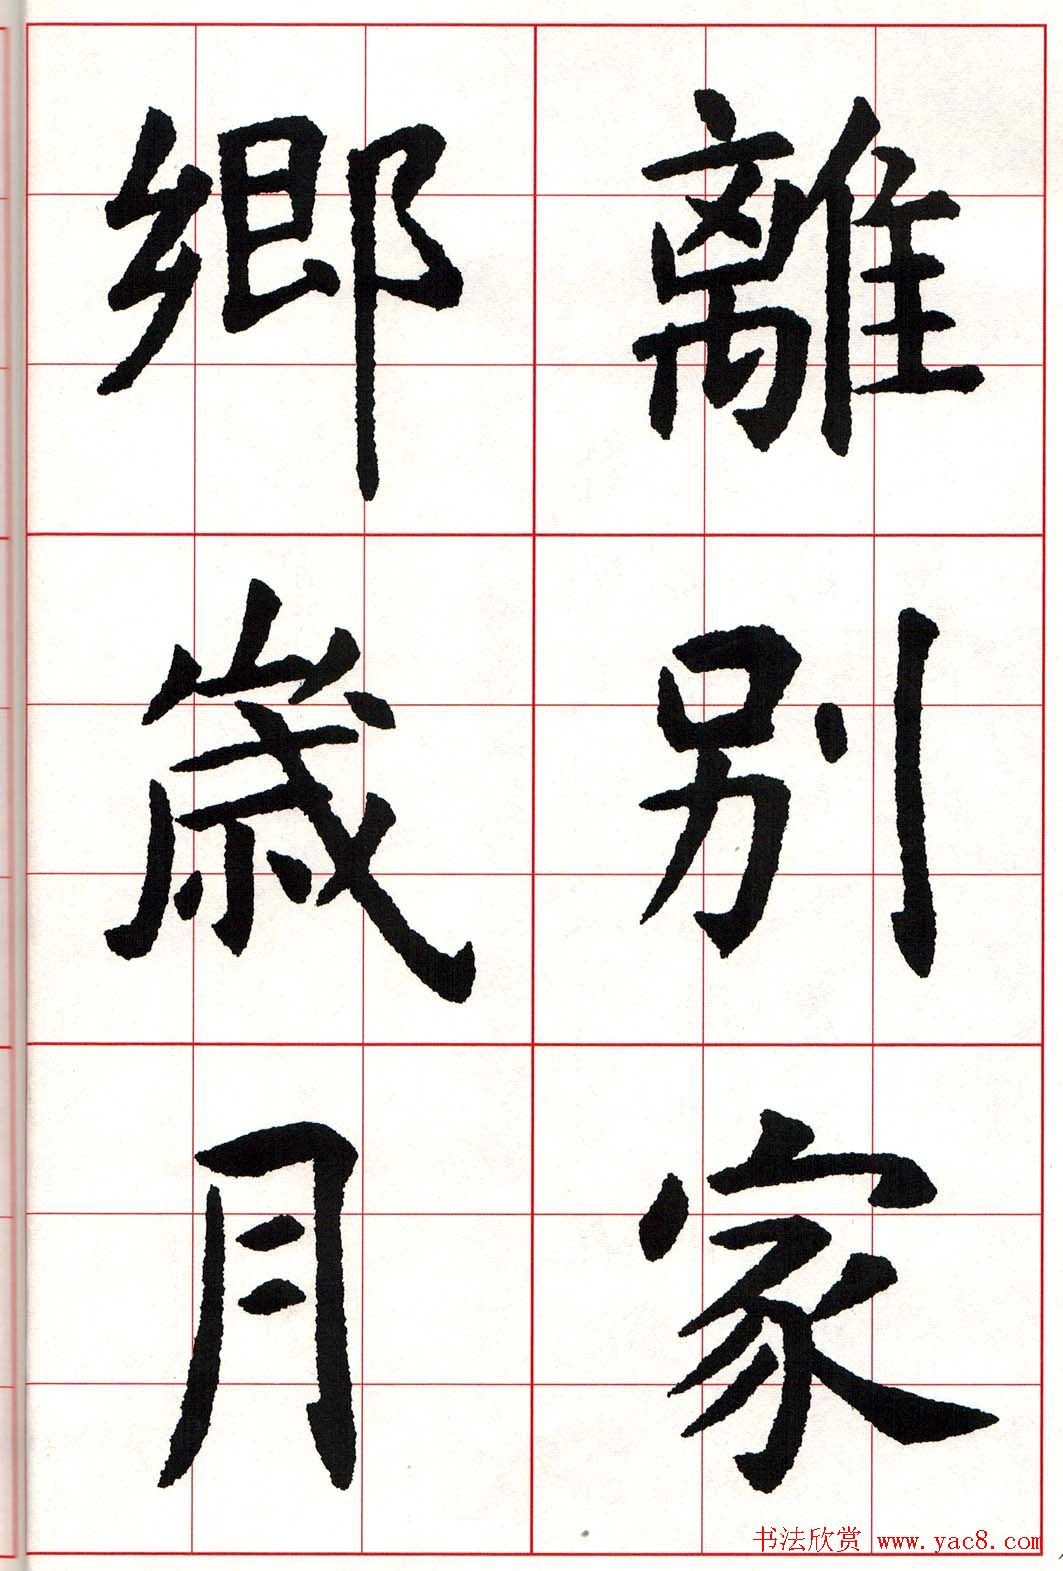 離別家
鄉歲月
书法欣赏 www.yac8.com